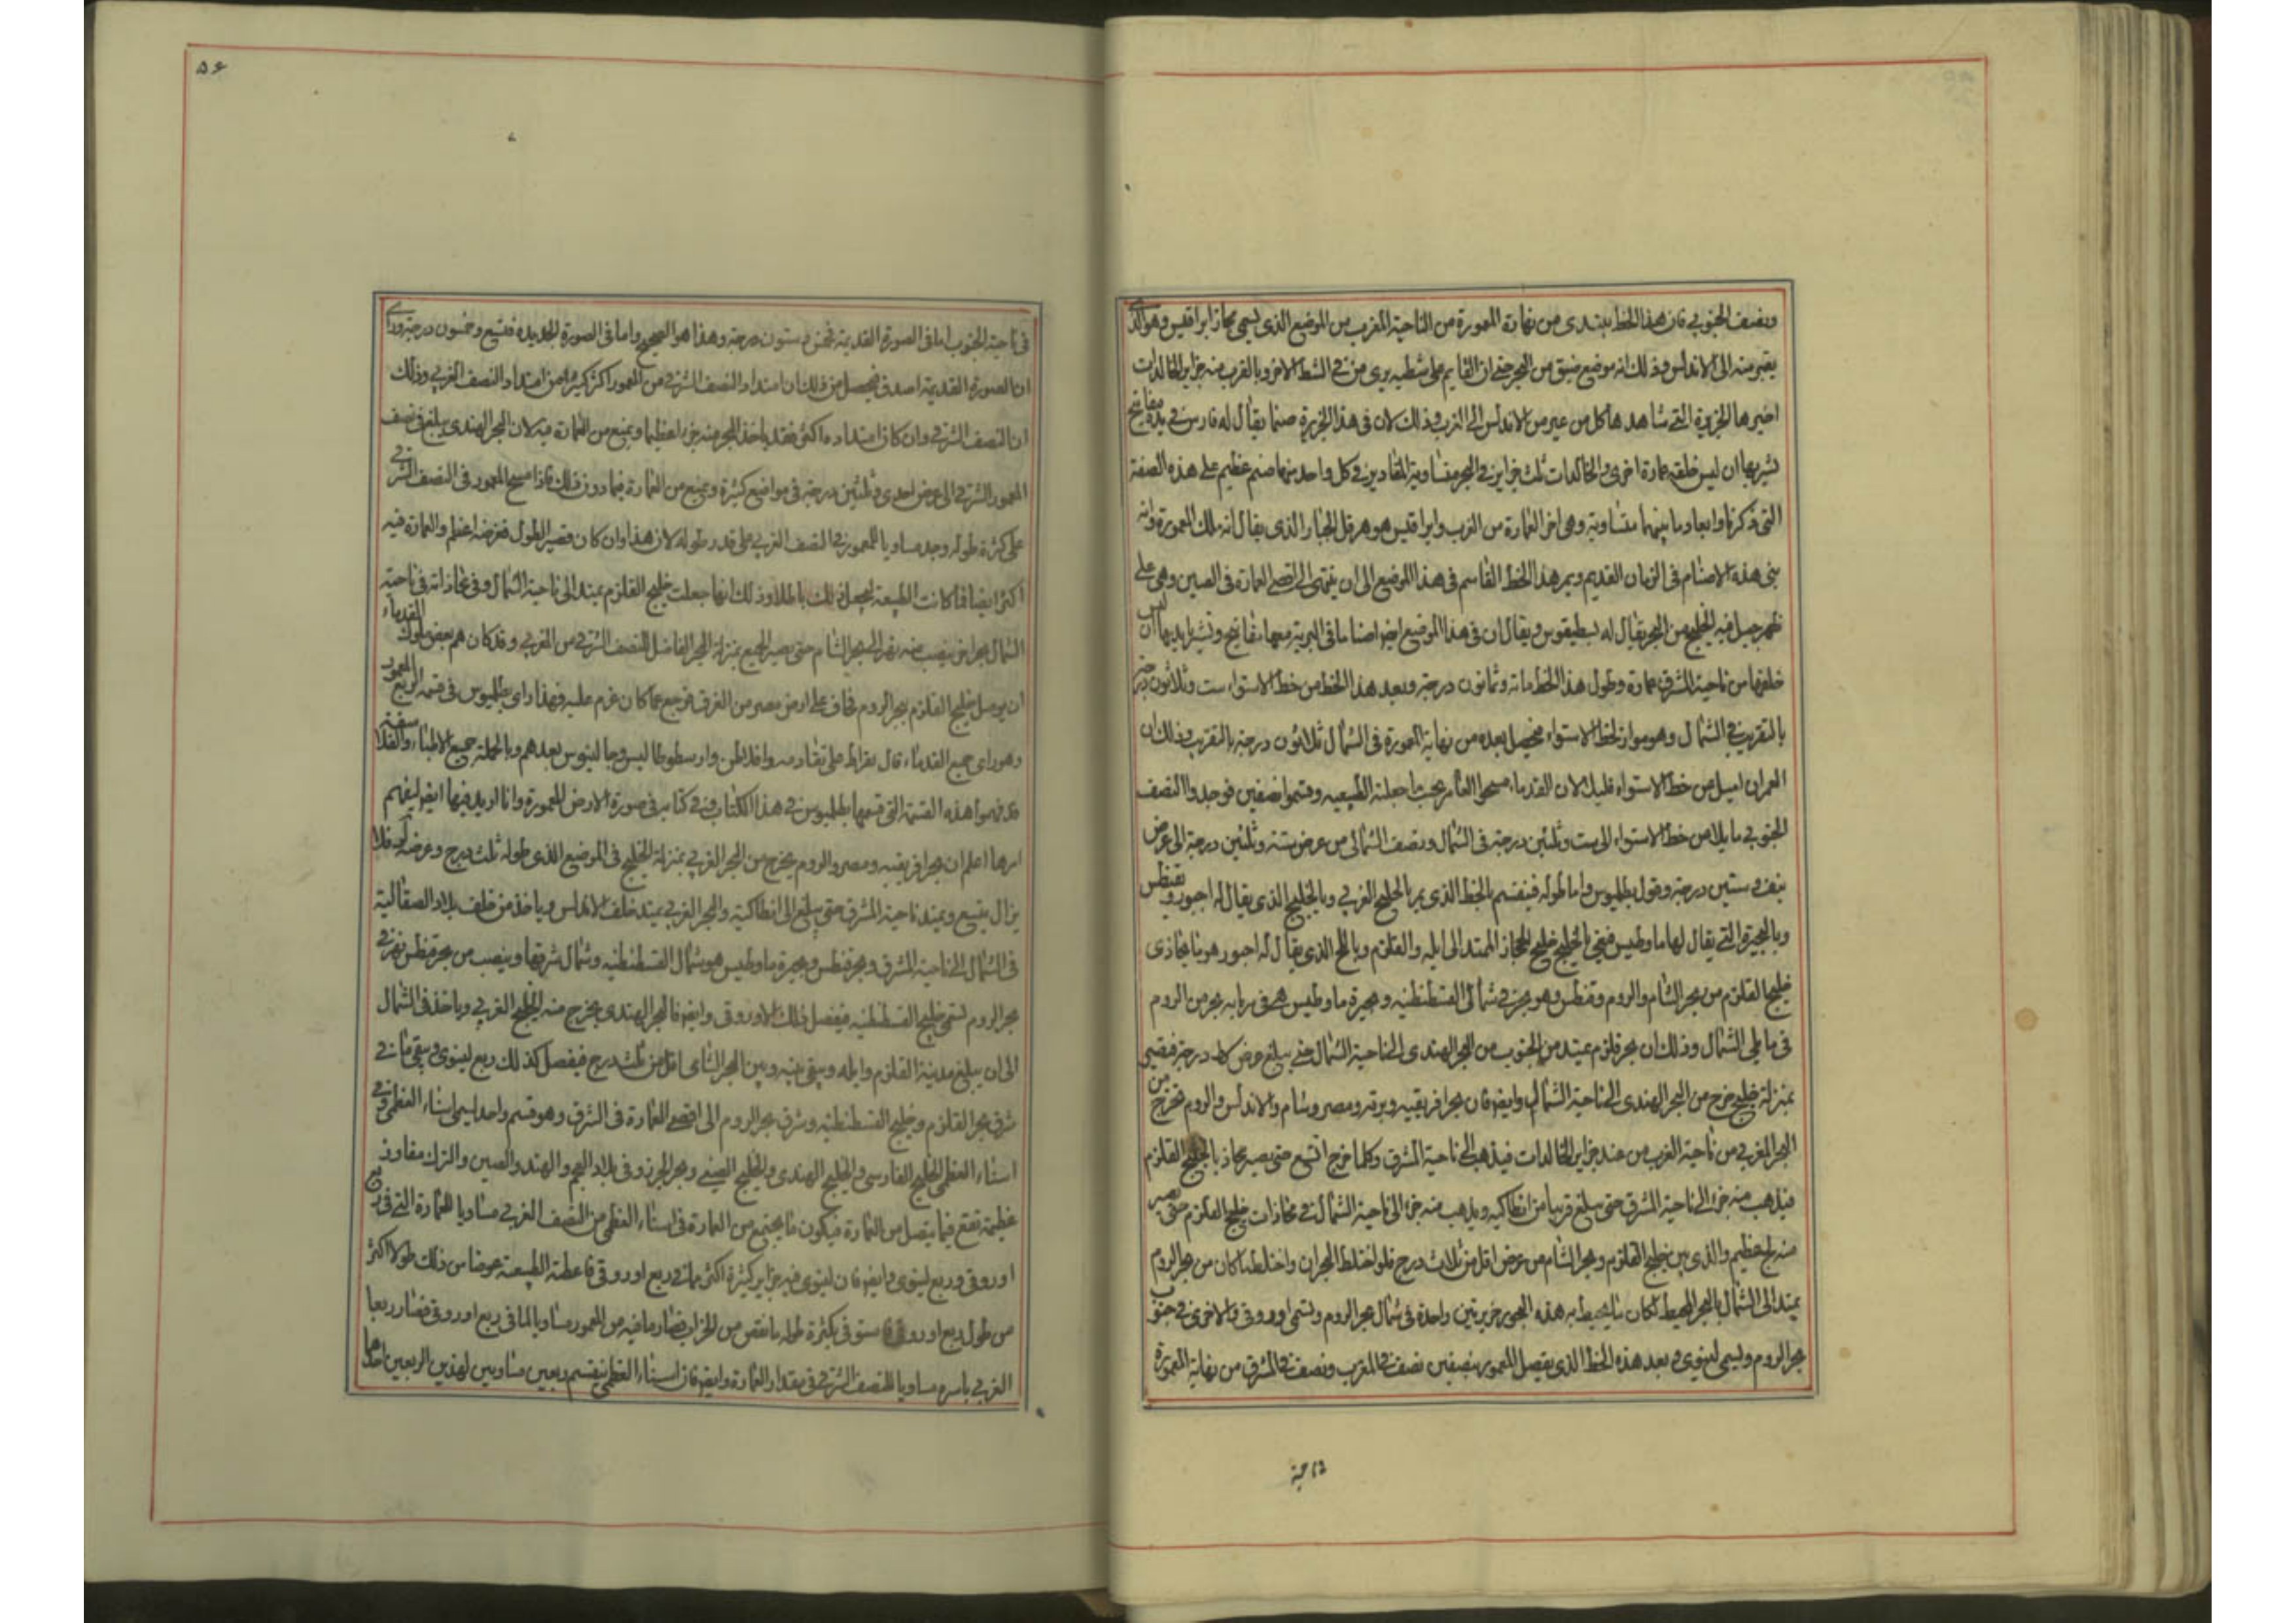 ونصف الجنوبي فان هذا الخط يبتدى من نهاية المعمورة من الناحية المغرب من الموضع الذى يسمى مجاز ابراقليس وهو الذى
يعبر منه الى الاندلس وذلك انه موضع ضيق من البحر حتى ان القايم على شطيه يرى من فى الشط الاخر وبالقرب منه جزاير الخالدات
اخيرها الجزيرة التى شاهدها كل من عبر من الاندلس الى الغرب وذلك لان فى هذا الجزيرة صنما يقال له فارس فى يده مفاتيح
يشير بها ان ليس خلفه عمارة اخرى والخالدات ثلث جزاير فى البحر متساوية المقادير فى كل واحد منها صنم عظيم على هذه الصفة
التى ذكرنا وابعاد ما بينهما متساوية وهى اخر العمارة من الغرب وابراقليس هو هرقل الجبار الذى يقال انه ملك المعمورة وانه
بنى هذه الاصنام فى الزمان القديم ويمر هذا الخط القاسم فى هذا الموضع الى ان ينتهى الى اقصى العمارة فى الصين وهى على
ظهر جبل فيه الخليج من البحر يقال له ويقال ان فى هذا الموضع ايضا اصناما فى البرية معها مفاتيح وتشير بايديها ان ليس
خلفها من ناحية الشرق عمارة وطول هذا الخط مائة وثمانون درجة وبعد هذا الخط من خط الاستواء ست وثلاثون درجة
بالتقريب فى الشمال وهو مواز لخط الاستواء فيحصل بعده من نهاية المعمورة فى الشمال ثلاثون درجة بالتقريب وذلك ان
العمران اميل من خط الاستواء قليل لان القدماء مسحوا العامر بحسب ما جعلته الطبيعيه وقسموا نصفين فوجدوا النصف
الجنوبى مايلا من خط الاستواء الى ست وثلثين درجة فى الشمال ونصف الشمالى من عرض ستة وثلثين درجة الى عرض
نيف وستين درجة وقول بطلميوس واما طوله فينقسم بالخط الذى يمر بالخليج الغربى وبالخليج الذى يقال له اجيور
وبالبحيرة التى يقال لها ماوطيس فيعنى بالخليج خليج الحجاز الممتد الى ايله والقلزم وبالخليج الذى يقال له اجيور هو ما يحاذى
خليج القلزم من بحر الشام والروم وقنطس وهو بحر فى شمال القسطنطنيه وبحيرة ماوطيس هى فى
فى ما يلى الشمال وذلك ان بحر قلزم يمتد من الجنوب من البحر الهندى الى ناحية الشمال حتى يبلغ عرض كط درجة فيصير
بمنزلة خليج خرج من البحر الهندى الى ناحية الشمال وايضا فان بحر افريقيه وبرقه ومصر وشام والاندلس والروم تخرج من
البحر المغربى من ناحية الغرب من عند جزاير الخالدات فيذهب الى ناحية المشرق وكلما خرج اتسع حتى يصير بالخليج القلزم
فيذهب منه جزء الى ناحية الشرق حتى يبلغ قريبا من انطاكيه ويذهب منه جزء الى ناحية الشمال فى محاذات خليج القلزم حتى يصير
منه خليج عظيم والذى بين خليج القلزم وبحر الشام من عرض اقل من ثلاث درج فلو اختلط البحران واختلط ما كان من بحر الروم
يمتد الى الشمال بالبحر المحيط لكان ما يحيط به هذه البحور جزيرتين واحدة فى شمال بحر الروم وتسمى اوروقى والاخرى فى جنوب
بحر الروم ويسمى لينوى وبعد هذه الخط الذى يفصل المعمور بنصفين نصف فى المغرب ونصف فى المشرق من نهاية المعمورة
ناحية
۵۶
فى ناحية الجنوب اما فى الصورة القديمة فخمس وستون درجة وهذا هو الصحيح واما فى الصورة الجديده فتسع وخمسون درجة وراى
ان الصورة القديمة اصدق فيحصل من ذلك ان امتداد النصف الشرقى من المعمور اكثر كثيرا من امتداد النصف الغربى وذلك
ان النصف الشرقى وان كان امتداده اكثر فقد ياخذ البحر منه جزء اعظيما ويمنع من العمارة فيه لان البحر الهندى يبلغ فى نصف
المعمور الشرقى الى عرض احدى وثلثين درجة فى مواضع كثيرة ويمنع من العمارة فيما دون ذلك فاذا مسح المعمور فى النصف الشرقى
على كثرة طوله وجد مساويا للمعمور فى النصف الغربى على قدر طوله لان هذا وان كان قصير الطول فعرضه اعظم والعمارة فيه
اكثر ايضا فما كانت الطبيعه لتجعل ذلك باطلا وذلك انها جعلت خليج القلزم يمتد الى ناحية الشمال وفى محاذاته فى ناحية
الشمال بحر اخر ينصب منه نهر الى بحر الشام حتى يصير الجميع بمنزلة البحر الفاصل للنصف الشرقى من الغربى وقد كان هم بعض ملوك القدماء
ان يوصل خليج القلزم ببحر الروم فخاف على ارض مصر من الغرق فرجع عما كان عزم عليه فهذا راى بطلميوس فى قسمه الربع المعمور
وهو راى جميع القدماء قال بقراط على تقادمه وافلاطن وارسطوطاليس وجالينوس بعدهم وبالجملة جميع الاطباء والفلاسفة
قد فهموا هذه القسمة التى قسمها بطلميوس فى هذا الكتاب وفى كتابه فى صورة الارض المعمورة وانا ازيد فيها ايضا ليفهم
امرها اعلم ان بحر افريقيه ومصر والروم يخرج من البحر الغربى بمنزلة الخليج فى الموضع الذى طوله ثلث درج وعرضه لو فلا
يزال يتسع ويمتد ناحية المشرق حتى يبلغ الى انطاكية والبحر الغربى يمتد خلف الاندلس وياخذ من خلف بلاد الصقالبة
فى الشمال الى ناحية المشرق وبحر قنطس وبحيرة ماوطيس هو شمال القسطنطنيه وشمال شرقها وينصب من بحر قنطس نهر فى
بحر الروم تسمى خليج القسطنطنيه فيفصل ذلك الاوروقى وايضا فالبحر الهندى يخرج منه الخليج الغربى وياخذ فى الشمال
الى ان يبلغ مدينة القلزم وايله ويبقى بينه وبين البحر الشامى اقل من ثلث درج فيفصل كذلك ربع لينوى ويبقى ما فى
شرق بحر القلزم وخليج القسطنطنيه وشرق بحر الروم الى اقصى العمارة فى الشرق وهو قسم واحد ليسمى اسناء العظمى وفى
اسناء العظمى الخليج الفارسى والخليج الهندى والخليج الصينى وبحر الخزر وفى بلاد العجم والهند والصين والترك مفاوز
عظيمة تقع فيما يتصل من العمارة فيكون ما يجتمع من العمارة فى اسناء العظمى من النصف الغربى مساويا للعمارة التى فى ربع
اوروقى وربع لينوى وايضا فان لينوى فيه جزاير كثيرة اكثر مما فى ربع اوروقى فاعطته الطبيعة عوضا من ذلك طولا اكثر
من طول ربع اوروقى فاستوفى بكثرة طوله ما نقص من الخراب فصار ما فيه من المعمور مساويا لما فى ربع اوروقى فصار ربعا
الغربى باسره مساويا للنصف الشرقى فى مقدار العمارة وايضا فان اسناء العظمى ينقسم ربعين مساويين لهذين الربعين احدهما